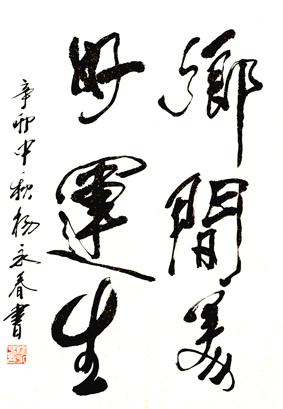 鄉間美
好運生
辛卯中秋楊永春書